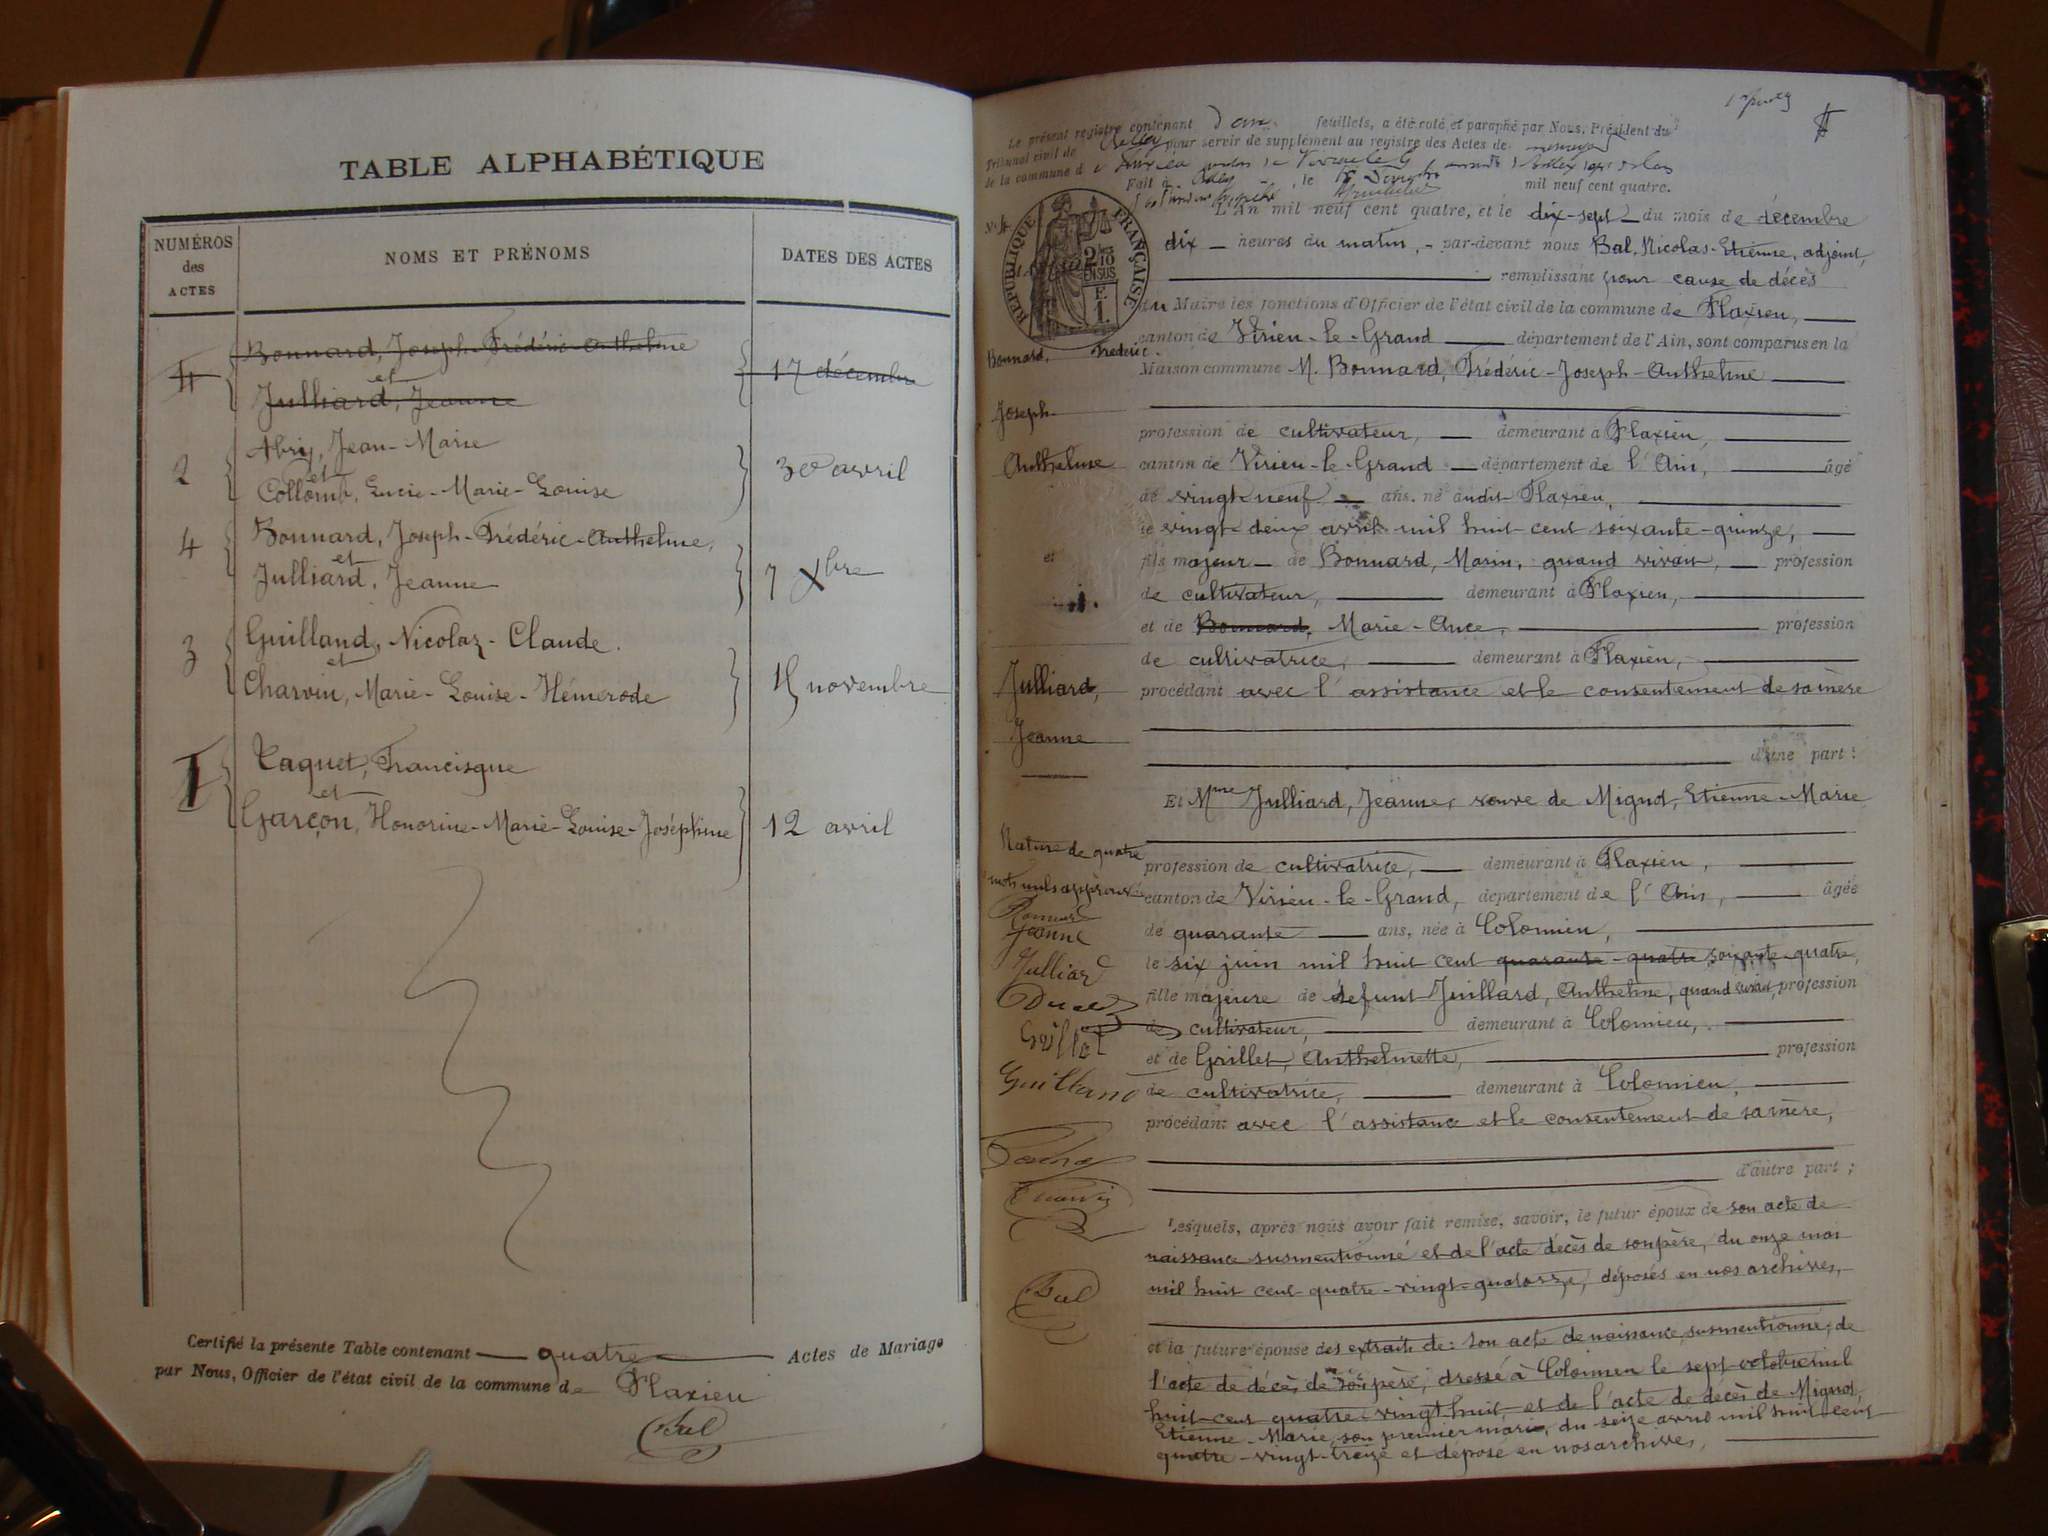 TABLE ALPHABÉTIQUE
NUMÉROS
des
ACTES
NOMS ET PRÉNOMS
DATES DES ACTES
Bonnard, Joseph-Frédéric-Anthelme
4
et
17 décembre
Julliard, Jeanne
Abry, Jean-Marie
2
et
30 avril
Collomb, Lucie-Marie-Louise
Bonnard, Joseph-Frédéric-Anthelme,
4
et
7 Xbre
Julliard, Jeanne
Guilland, Nicolaz-Claude.
3
et
15 novembre
Charvin, Marie-Louise-Hémerode
Taquet, Francisque
1
et
Garçon, Honorine-Marie-Louise-Joséphine
12 avril
Certifié la présente Table contenant quatre Actes de Mariage
par Nous, Officier de l'état civil de la commune de Flaxieu
Bal
Le présent registre contenant feuillets, a été coté et paraphé par Nous, Président du
Tribunal civil de Belley pour servir de supplément au registre des Actes de mariage
de la commune de Flaxieu
Fait à Belley, le mil neuf cent quatre.
N° 4
RÉPUBLIQUE FRANÇAISE
2/10 EN SUS
L'An mil neuf cent quatre, et le dix-sept du mois de décembre
dix heures du matin, par-devant nous Bal, Nicolas-Etienne, adjoint,
remplissant pour cause de décès
du Maire les fonctions d'Officier de l'état civil de la commune de Flaxieu,
canton de Virieu-le-Grand département de l'Ain, sont comparus en la
Bonnard, Frédéric-
Maison commune M. Bonnard, Frédéric-Joseph-Anthelme
Joseph-
profession de cultivateur, demeurant à Flaxieu,
Anthelme
canton de Virieu-le-Grand département de l'Ain, âgé
de vingt-neuf ans, né audit Flaxieu,
le vingt-deux avril mil huit cent soixante-quinze,
et
fils majeur de Bonnard, Marin, quand vivait, profession
de cultivateur, demeurant à Flaxieu,
et de Bonnard, Marie-Ance, profession
de cultivatrice, demeurant à Flaxieu,
Julliard,
procédant avec l'assistance et le consentement de sa mère
Jeanne
d'une part:
Et Mme Julliard, Jeanne, veuve de Mignot, Etienne-Marie
Nature de quatre
profession de cultivatrice, demeurant à Flaxieu,
mots nuls approuvés
canton de Virieu-le-Grand, département de l'Ain, âgée
Bonnard
Jeanne
de quarante ans, née à Colomieu,
Julliard
le six juin mil huit cent quarante-quatre soixante-quatre,
fille majeure de défunt Juillard, Anthelme, quand vivait, profession
de cultivateur, demeurant à Colomieu,
Grillet
et de Grillet, Anthelmette, profession
Guilland
de cultivatrice, demeurant à Colomieu,
procédant avec l'assistance et le consentement de sa mère,
d'autre part;
Charvin
Lesquels, après nous avoir fait remise, savoir, le futur époux de son acte de
naissance susmentionné et de l'acte décès de son père, du onze mai
Bal
mil huit cent quatre-vingt-quatorze, déposés en nos archives,
et la future épouse des extraits de: son acte de naissance, susmentionné; de
l'acte de décès de son père, dressé à Colomieu le sept octobre mil
huit-cent quatre-vingt huit, et de l'acte de décès de Mignot,
Etienne-Marie, son premier mari, du seize avril mil huit-cent
quatre-vingt-treize et déposé en nos archives,